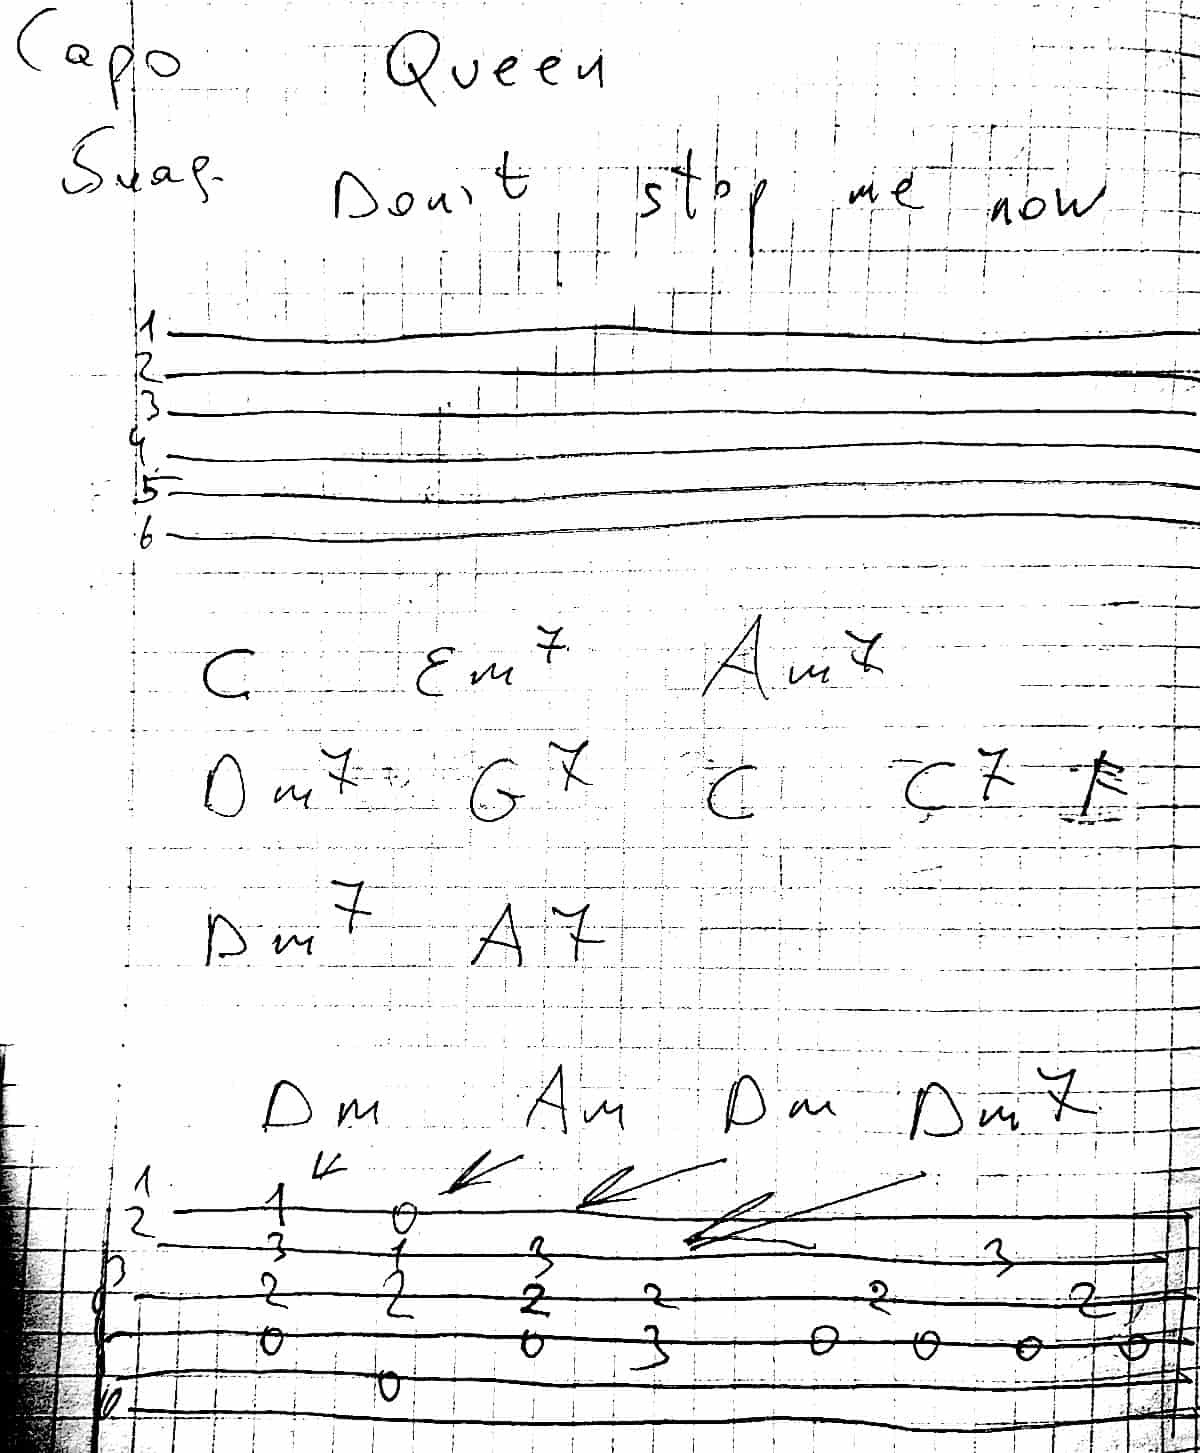 Capo Queen
Don't stop me now
1
2
3
4
5
6
C Em7 Am7
Dm7 G7 C C7 F
Dm7 A7
Dm Am Dm Dm7
1 1 0
2 3 1 3 3
3 2 2 2 2 2 2
0 0 3 0 0 0 0
0
6